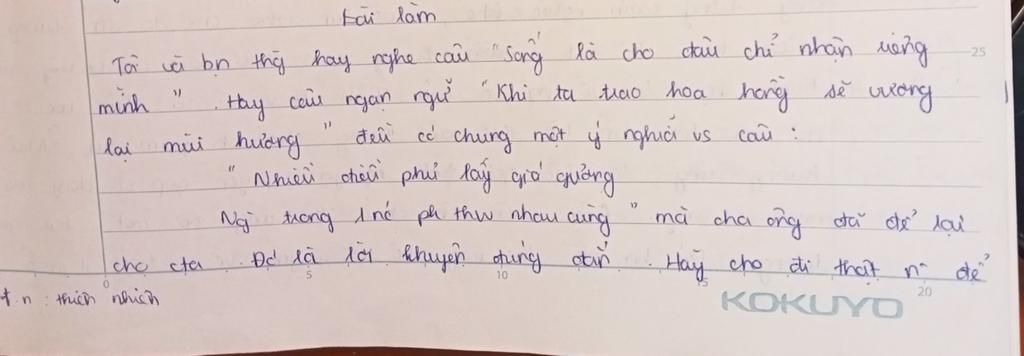 Bài làm
Tôi và bn thg hay nghe câu "Sống là cho đâu chỉ nhận riêng 25
mình". Hay câu ngạn ngữ "Khi ta trao hoa hồng sẽ vương
lại mùi hương" đều có chung một ý nghĩa vs câu:
"Nhiễu điều phủ lấy giá gương
Ng trong 1 nc ph thw nhau cùng" mà cha ông đã để lại
cho cta. Đó là lời khuyên đúng đắn. Hãy cho đi thật n` để
0 5 10 15 20
t.n: thiên nhiên
KOKUYO